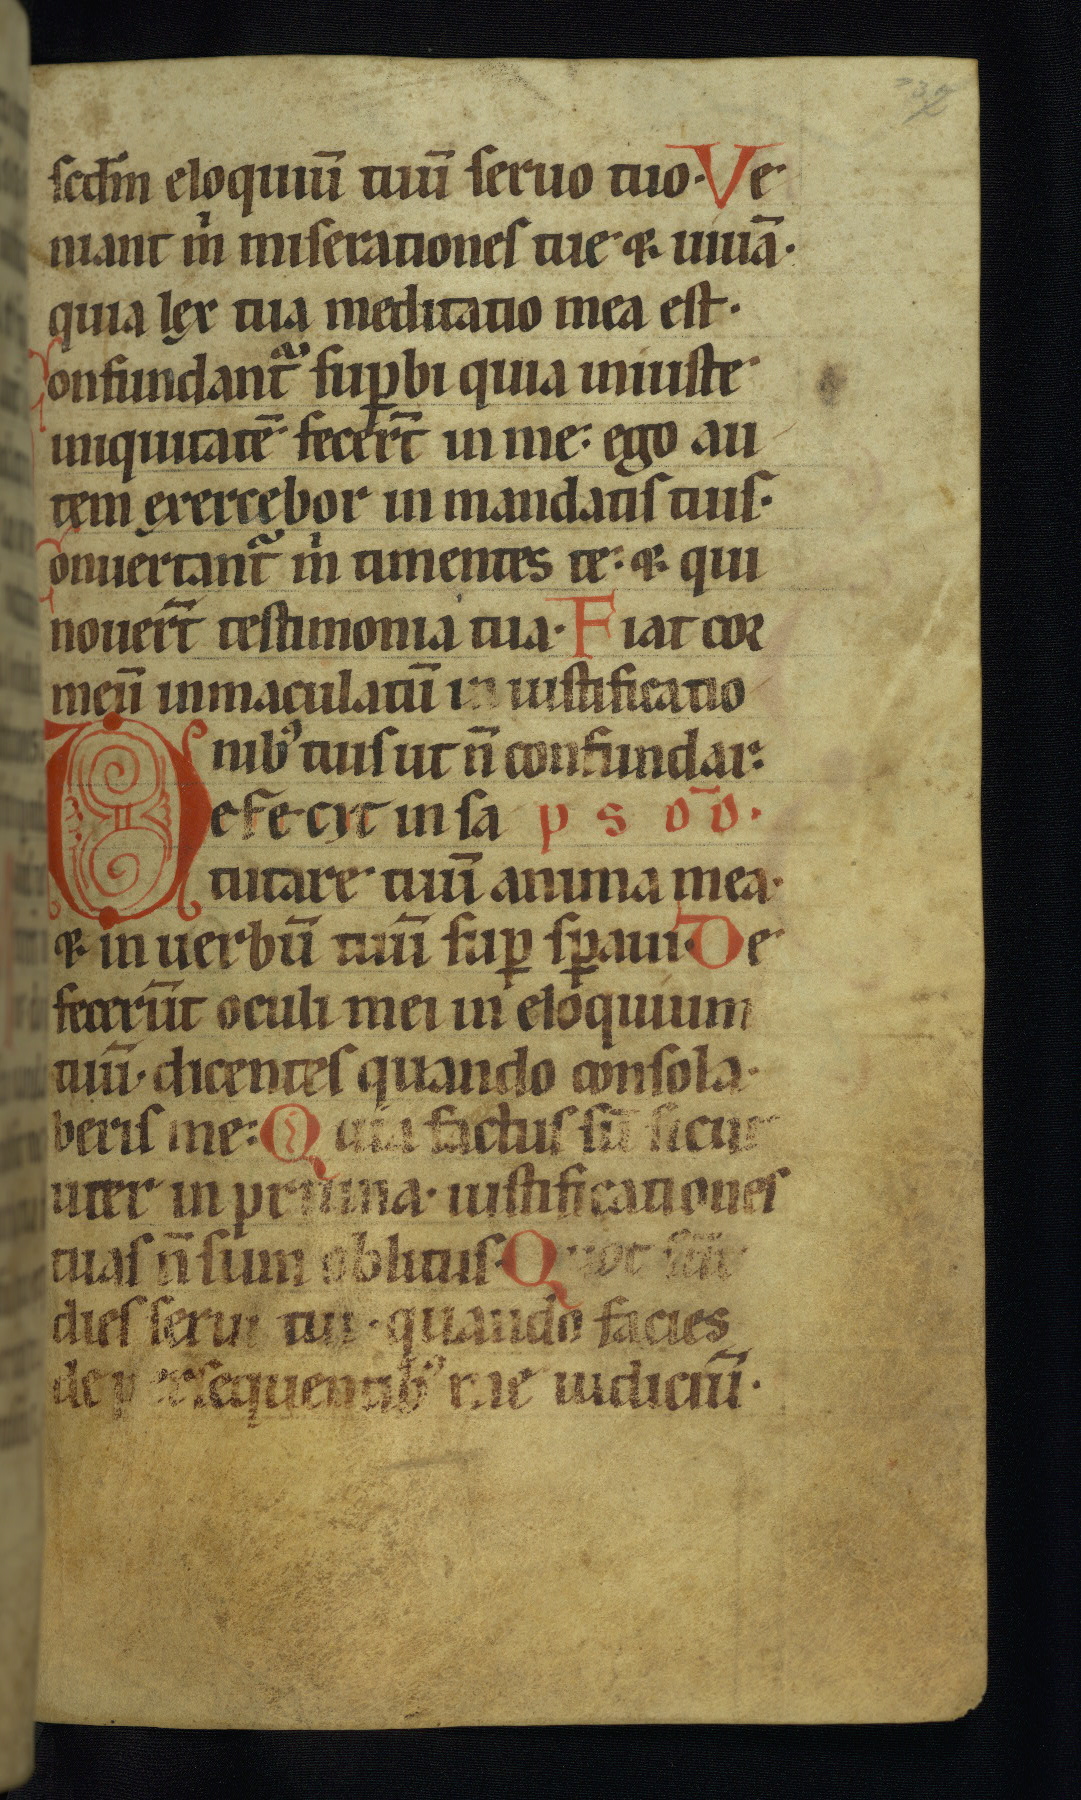 scdm̄ eloquiū tuū seruo tuo. Ve
niant m̍ miserationes tue & uiuā.
quia lex tua meditatio mea est.
Confundant᷑ sup̱bi quia iniuste
iniquitatē fecer̄t in me: ego au
tem exercebor in mandatis tuis.
Conuertant᷑ m̍ timentes te: & qui
nouer̄t testimonia tua. Fiat cor
meū inmaculatū in iustificatio
nibꝰ tuis ut n̄ confundar:
Defecit in sa p s ōō.
lutare tuū anima mea.
& in uerbū tuū sup̱ sp̱aui. De
fecerūt oculi mei in eloquium
tuū. dicentes quando consola
beris me: Quia factus sū sicut
uter in pruina. iustificationes
tuas n̄ sum oblitus. Quot sūt
dies serui tui. quando facies
de persequentibꝰ me iudiciū.